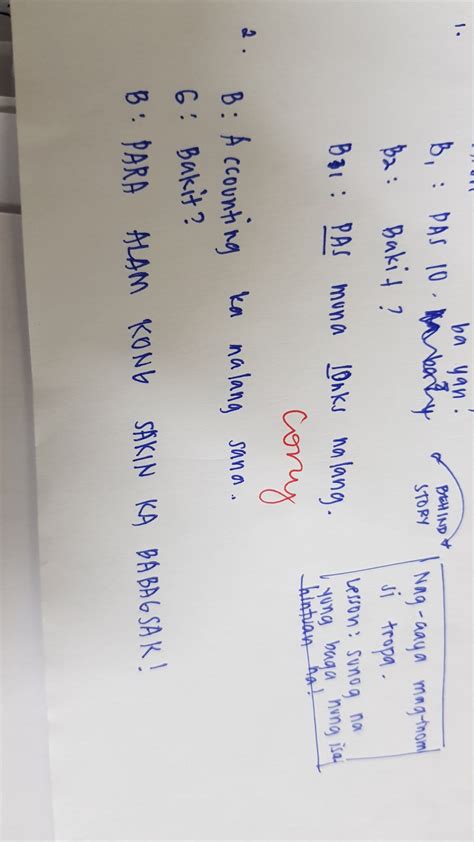 1.
ba yan!
B1 : PAS 10.
B2 : Bakit ?
B1 : PAS muna 10nks nalang.
BEHIND
STORY
Nag-aaya mag-inom
si tropa.
Lesson: sunog na
yung baga nung isa
hintuan na!
corny
2. B: Accounting ka nalang sana..
G: Bakit?
B: PARA ALAM KONG SAKIN KA BABAGSAK!